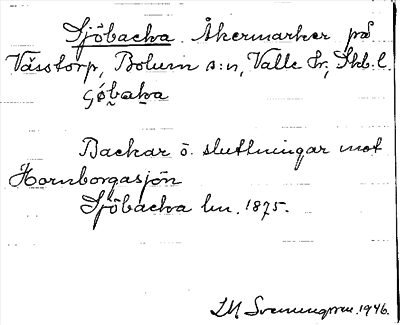 Sjöbacka Åkermarker på
Vässtorp, Bolum s:n, Valle hr, Skb. l.
Backar o. sluttningar mot
Hornborgasjön
Sjöbacka lm. 1875.
1946.